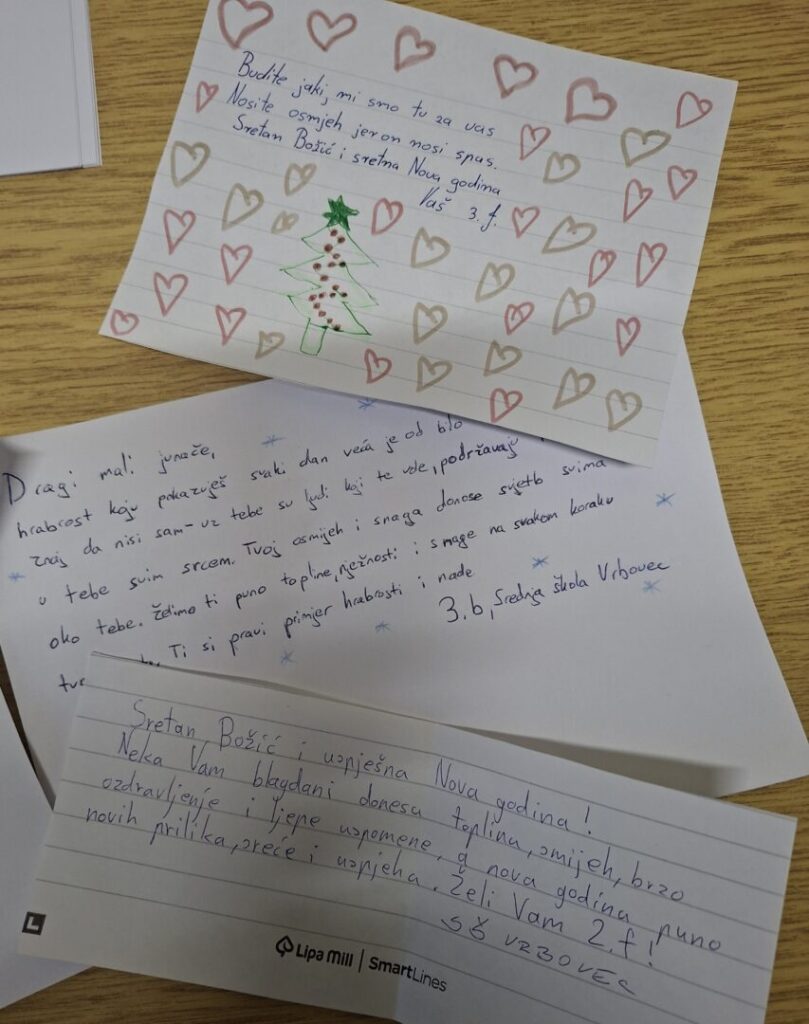 Budite jaki, mi smo tu za vas
Nosite osmjeh jer on nosi spas.
Sretan Božić i sretna Nova godina
Vaš 3.f.
Dragi mali junače,
hrabrost koju pokazuješ svaki dan veća je od bilo
znaj da nisi sam-uz tebe su ljudi koji te vole, podržavaju
u tebe svim srcem. Tvoj osmijeh i snaga donose svjetlo svima
oko tebe. Želimo ti puno topline, nježnosti i snage na svakom koraku
Ti si pravi primjer hrabrosti i nade
3.b, Srednja škola Vrbovec
Sretan Božić i uspješna Nova godina!
Neka Vam blagdani donesu toplinu, smijeh, brzo
ozdravljenje i ljepe uspomene, a nova godina puno
novih prilika, sreće i uspjeha. Želi Vam 2.f!
SŠ VRBOVEC
L
Lipa Mill | SmartLines